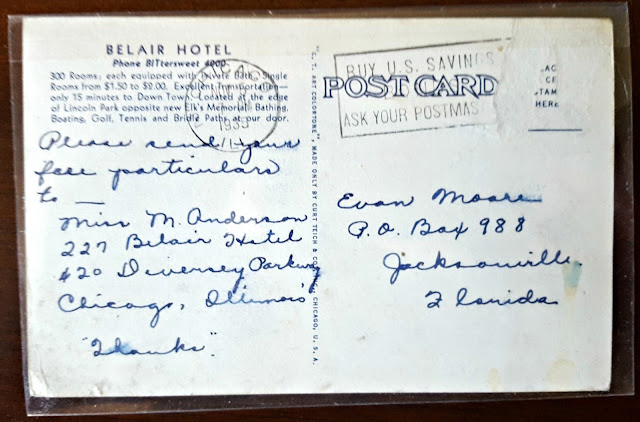 BELAIR HOTEL
Phone BITtersweet 4000
300 Rooms; each equipped with Private Bath. Single
Rooms from $1.50 to $2.00. Excellent Transportation—
only 15 minutes to Down Town. Located at the edge
of Lincoln Park opposite new Elk's Memorial. Bathing,
Boating, Golf, Tennis and Bridle Paths at our door.
Please send your
free particulars
to —
Miss M. Anderson
227 Belair Hotel
420 Diversey Parkway
Chicago, Illinois
"Thanks".
"C. T. ART COLORTONE" MADE ONLY BY CURT TEICH & CO., INC., CHICAGO, U. S. A.
CHICAGO
1939
ILL
BUY U.S. SAVINGS
ASK YOUR POSTMAS
POST CARD
AC
CE
TAM
HERE
Evan Moore
P.O. Box 988
Jacksonville
Florida